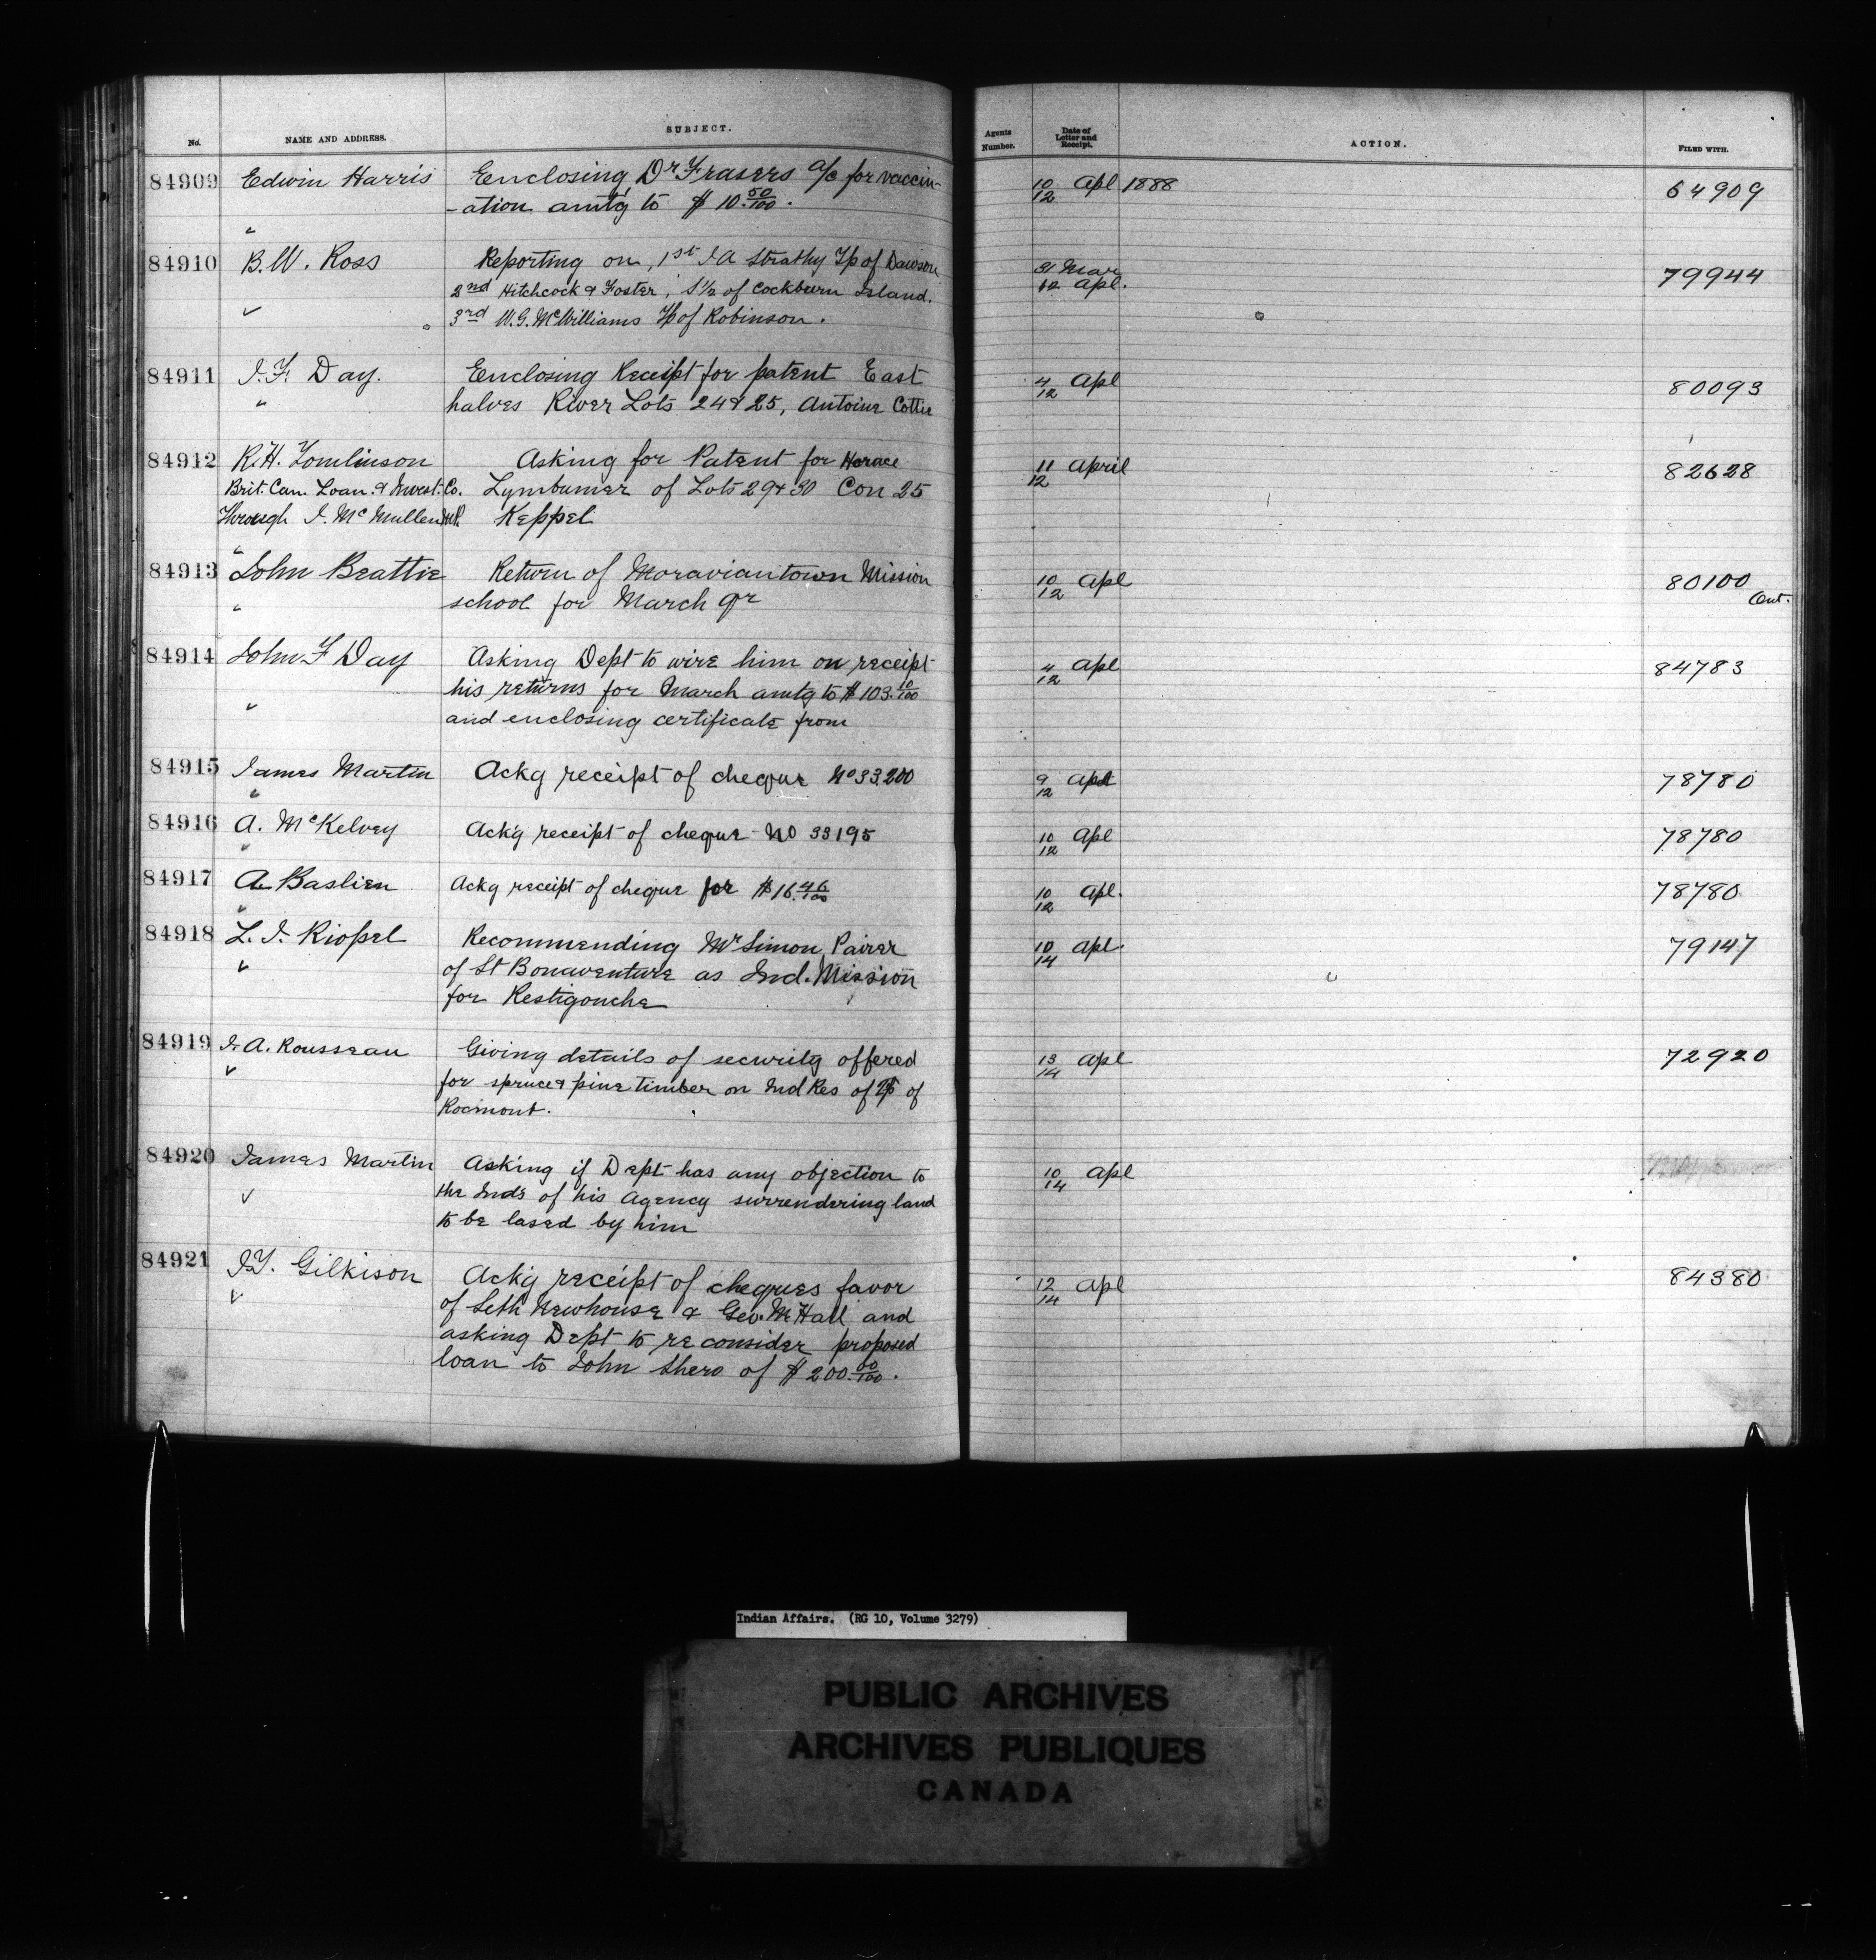 No. NAME AND ADDRESS. SUBJECT. Agents Number. Date of Letter and Receipt. ACTION. FILED WITH.
84909 Edwin Harris Enclosing Dr Frasers a/c for vaccin- 10/12 Apl 1888 64909
-ation amtg to $10.50/100.
84910 B.W. Ross Reporting on, 1st J A Strathy Tp of Dawson 31 Mar 79944
2nd Hitchcock & Foster, S 1/2 of Cockburn Island. 12 Apl.
3rd W.G. McWilliams Tp of Robinson.
84911 J.F. Day. Enclosing Receipt for patent East 4/12 Apl 80093
" halves River Lots 24 & 25, Antoine Cotter
84912 R.H. Tomlinson Asking for Patent for Horace 11/12 April 82628
Brit. Can. Loan. & Invest. Co. Lymburner of Lots 29 & 30 Con 25
Through J. McMullen M.P. Keppel
84913 John Beattie Return of Moraviantown Mission 10/12 Apl 80100
" school for March qr Ont.
84914 John F Day Asking Dept to wire him on receipt 4/12 Apl 84783
his returns for March amtg to $103.10/100
and enclosing certificate from
84915 James Martin Ackg receipt of cheque No 33200 9/12 Apl 78780
84916 A. McKelvey Ack'g receipt of cheque No 33195 10/12 Apl 78780
84917 A. Bastien Ackg receipt of cheque for $16.46/100 10/12 Apl. 78780
84918 L. J. Riopel Recommending Mr Simon Poirer 10/14 Apl. 79147
of St Bonaventure as Ind. Mission
for Restigouche
84919 J. A. Rousseau Giving details of security offered 13/14 Apl 72920
for spruce & pine timber on Ind Res of Tp of
Rocmont.
84920 James Martin Asking if Dept has any objection to 10/14 Apl
the Inds of his Agency surrendering land
to be lased by him
84921 J.T. Gilkison Ack'g receipt of cheques favor 12/14 Apl 84380
of Seth Newhouse & Geo. M. Hall and
asking Dept to reconsider proposed
loan to John Shero of $200.00/100.
Indian Affairs. (RG 10, Volume 3279)
PUBLIC ARCHIVES
ARCHIVES PUBLIQUES
CANADA